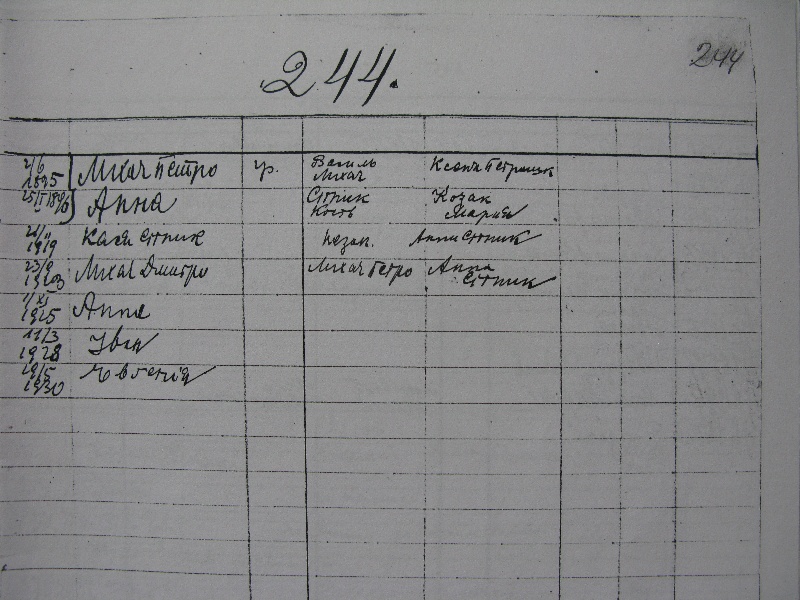 244.
244
2/6 1895 Михач Петро гр. Василь Михач Ксеня Петришин
25/II 18 Анна Стпик Кость Козак Мария
1919 Кася Стпик незак. Анни Стпик
23/ Михач Дмитро Михач Петро Анна Стпик
1/XI 1925 Анна
11/3 1928 Iван
29/5 1930 Євгенія